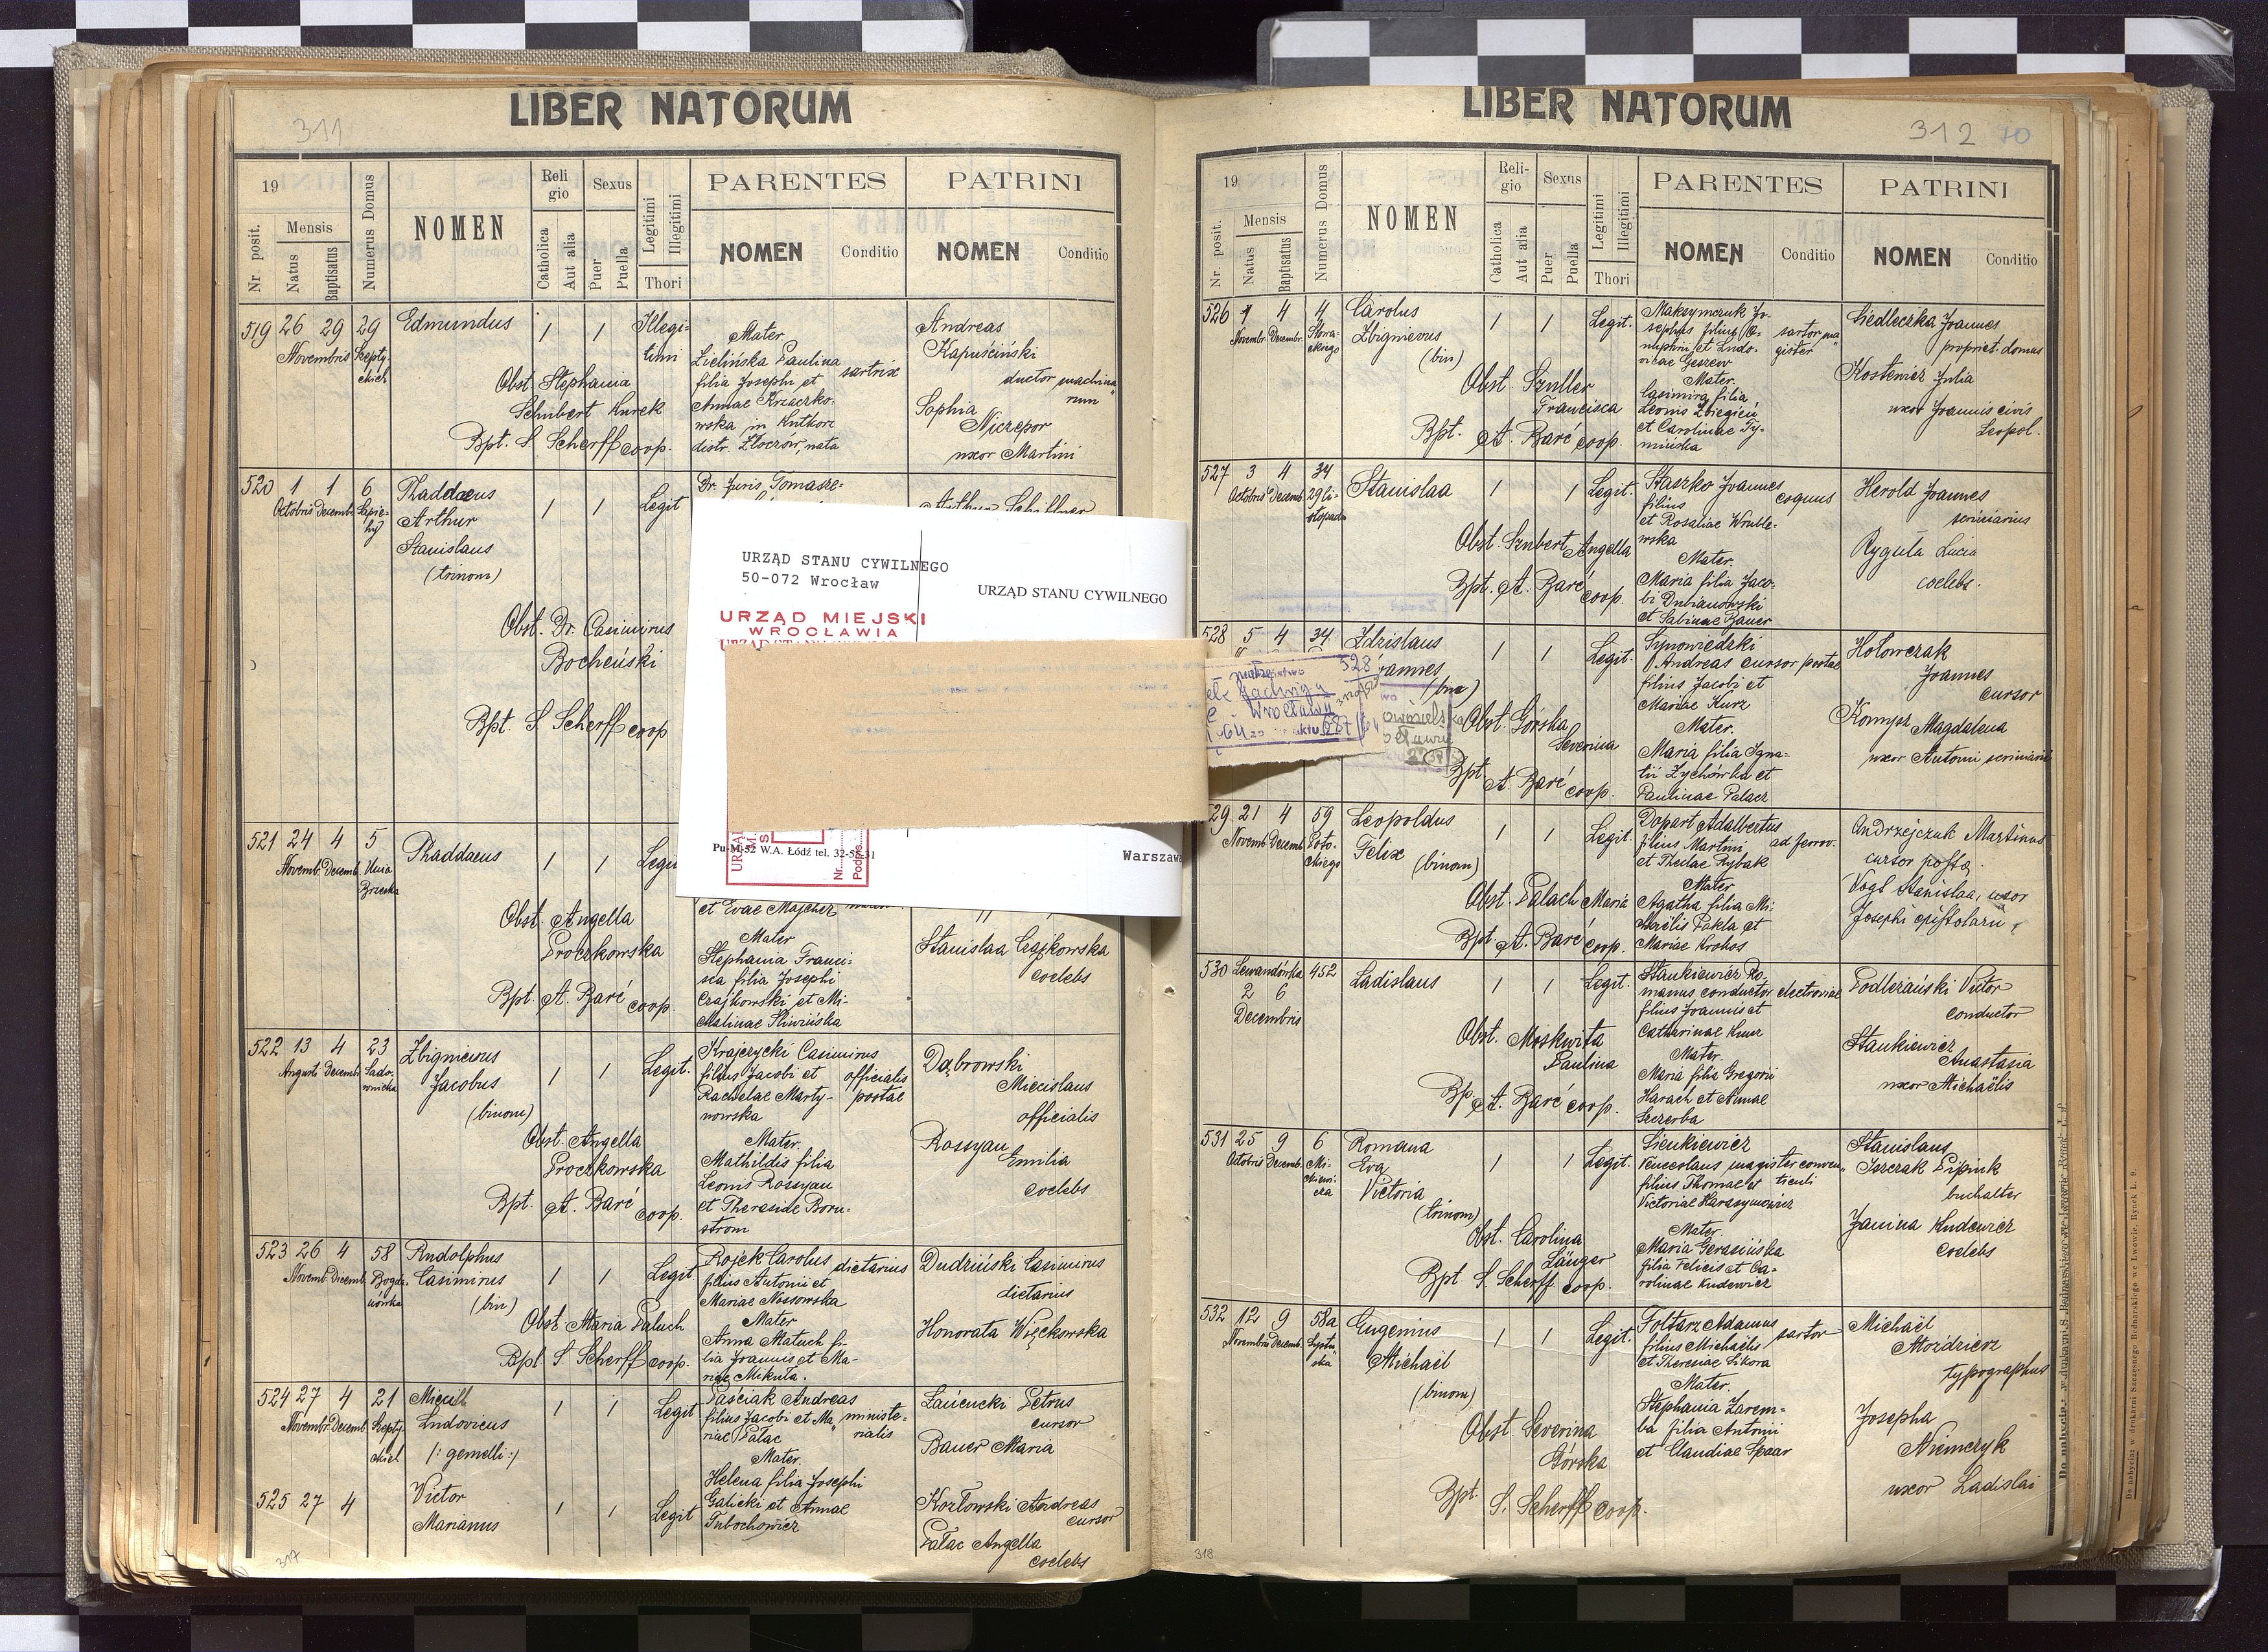 311
LIBER NATORUM
19
Nr. posit.
Mensis
Natus
Baptisatus
Numerus Domus
NOMEN
Religio
Catholica
Aut alia
Sexus
Puer
Puella
Legitimi
Illegitimi
Thori
PARENTES
NOMEN
Conditio
PATRINI
NOMEN
Conditio
519 26 29 29 Edmundus 1 1 Illegitimi
Novembris Szeptyckich
Obst. Stephania
Schubert Kurek
Bpt. S. Scherff coop.
Mater
Zielińska Paulina sartrix
filia Josephi et
Annae Krzaczko-
wska in Kutkorz
distr. Złoczów, nata
Andreas
Kapuściński
ductor machina-
rum
Sophia
Niczepor
uxor Martini
520 1 1 6 Thaddaeus 1 1 Legit
Octobris Decemb. Sapiehy
Arthur
Stanislaus
(trinom)
Obst. Dr. Casimirus
Bocheński
Bpt. S. Scherff coop
Dr. Juris Tomasze-
URZĄD STANU CYWILNEGO
50-072 Wrocław
URZĄD STANU CYWILNEGO
URZĄD MIEJSKI
WROCŁAWIA
Pu-M-52 W.A. Łódź tel. 32-55-31
Warszawa
521 24 4 5 Thaddaeus 1 1
Novemb. Decemb. Unia
Brzeska
Obst. Angella
Proczkowska
Bpt. A. Baré coop.
et Evae Majcher
Mater
Stephania Franci-
sca filia Josephi
Czajkowski et Mi-
chalinae Śliwińska
Stanislaa Czajkowska
coelebs
522 13 4 23 Zbignievus 1 1 Legit.
Augusti Decemb. Sadownicka
Jacobus
(binom)
Obst. Angella
Proczkowska
Bpt. A. Baré coop.
Krajczycki Casimirus
filius Jacobi et officialis
Rachelae Marty- postae
nowska
Mater.
Mathildis filia
Leonis Rossyau
et
Dąbrowski
Miecislaus
officialis
Rossyau
Emilia
coelebs
523 26 4 58 Rudolphus 1 1 Legit
Novemb. Decemb. Bogdanówka
Casimirus
(bin)
Obst. Maria Paluch
Bpt S. Scherff coop.
Rojek Carolus dietarius
filius Antonii et
Mariae Nossowska
Mater
Anna Matuch fi-
lia Joannis et Ma-
riae Mikuta.
Dudziński Casimirus
dietarius
Honorata Więckowska
524 27 4 21 1 1 Legit
Novembr. Decemb.
Ludovicus
/: gemelli :/
Paściak Andreas
filius Jacobi et Ma- ministe-
riae Pałac rialis
Mater.
Helena filia Josephi
Galicki et Annae
Tubochowicz
Łańcucki Petrus
cursor
Bauer Maria
525 27 4 Victor 1 1 Legit
Marianus
Kozłowski Andreas
cursor
Pałac Angella
coelebs
317
312 10
LIBER NATORUM
19
Nr. posit.
Mensis
Natus
Baptisatus
Numerus Domus
NOMEN
Religio
Catholica
Aut alia
Sexus
Puer
Puella
Legitimi
Illegitimi
Thori
PARENTES
NOMEN
Conditio
PATRINI
NOMEN
Conditio
526 1 4 4 Carolus 1 1 Legit.
Novembr. Decembr. Słowackiego
Zbignievus
(bin)
Obst. Szuller
Francisca
Bpt. A. Baré coop.
Maksymczuk Jo-
sephus filius O- sartor ma-
nuphrii et Ludo- gister
vicae Geszew
Mater.
Casimira filia
Leonis Zbiegień
et Carolinae Ty-
mińska
Siedleczka Joannes
propriet. domus
Kostewicz Julia
uxor Joannis civis
Leopol.
527 3 4 34 Stanislaa 1 1 Legit.
Octobris Decemb. 29 listopada
Obst. Szubert Angella
Bpt. A. Baré coop.
Staszko Joannes coquus
filius
et Rosaliae Wruble-
wska
Mater.
Maria filia Jaco-
bi Dubianowski
et Sabinae Bauer
Herold Joannes
scriniarius
Ryguła Lucia
coelebs.
528 5 4 34 Zdzislaus 1 1 Legit.
(bin)
528
Jadwigą
Wrocławiu
aktu 687/64
Obst. Górska
Severina
Bpt. A. Baré coop.
Synowiedzki
Andreas cursor postae
filius Jacobi et
Mariae Kurz
Mater.
Maria filia Igna-
tii Zychówka et
Paulinae Palacz
Hołowczak
Joannes
cursor
Konysz Magdalena
uxor Antonii scriniarii
29 21 4 59 Leopoldus 1 1 Legit.
Novemb. Decemb. Potockiego
Felix (binom)
Obst. Palach Maria
Bpt A. Baré coop.
Dopart Adalbertus
filius Martini ad ferrov.
et Theclae Rybak
Mater
Agatha filia Mi-
chaëlis Pakla et
Mariae Krohos
Andrzejczuk Martinus
cursor posta
Vogl Stanislaa, uxor
Josephi
530 Lewandówka 452 Ladislaus 1 1 Legit.
2 6
Decembris
Obst. Moskwita
Paulina
Bp. A. Baré coop.
Stankiewicz Ro-
manus conductor electroviae
filius Joannis et
Catharinae Kunz
Mater.
Maria filia Gregorii
Harach et Annae
Szczerba
Podleżański Victor
conductor
Stankiewicz
Anastasia
uxor Michaëlis
531 25 9 6 Romana 1 1 Legit.
Octobris Decemb. Mickiewicza
Eva
Victoria
(trinom)
Obst. Carolina
Länger
Bpt S. Scherff coop.
Sienkiewicz
Venceslaus magister conven-
filius Thomae et ticuli
Victoriae Harasymowicz
Mater.
Maria Gerasińska
filia Felicis et Ca-
rolinae Kudewicz
Stanislaus
Iszczak Pipink
buchalter
Janina Kudewicz
coelebs
532 12 9 58a Eugenius 1 1 Legit.
Novembris Decemb.
Michaël
(binom)
Obst Severina
Górska
Bpt. S. Scherff coop.
Foltarz Adamus sartor
filius Michaëlis
et Theresae Sikora
Mater.
Stephania Zarem-
ba filia Antonii
et Claudiae Spaar
Michaël
Mozdzierz
typographus
Josepha
Niemczyk
uxor Ladislai
318